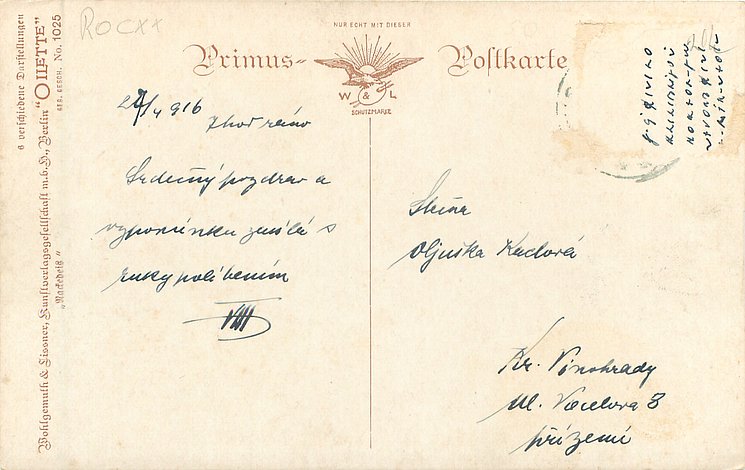 6 verschiedene Darstellungen
Wohlgemuth & Lissner, Kunstverlagsgesellschaft m.b.H., Berlin "OILETTE"
GES. GESCH. No. 1025
"Nackedeis"
ROCXX
NUR ECHT MIT DIESER
Primus- Postkarte
W & L
SCHUTZMARKE
/4 916
Srdečný pozdrav a
vzpomínku zasílá s
ruky políbením
VIII
Slečna
Oljuška
Kr. Vinohrady
ul. Vocelova 8
přízemí